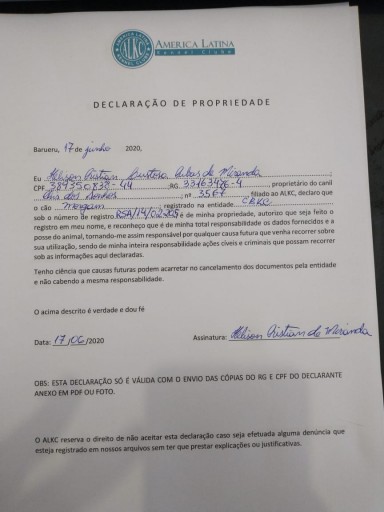 AMERICA LATINA
Kennel Clube
ALKC
DECLARAÇÃO DE PROPRIEDADE
Barueru, 17 de junho 2020,
Eu Cristian de Miranda
CPF RG 33163426-4, proprietário do canil
dos nº 3567 filiado ao ALKC, declaro que
o cão registrado na entidade CBKC
sob o número de registro é de minha propriedade, autorizo que seja feito o
registro em meu nome, e reconheço que é de minha total responsabilidade os dados fornecidos e a
posse do animal, tornando-me assim responsável por qualquer causa futura que venha recorrer sobre
sua utilização, sendo de minha inteira responsabilidade ações civeis e criminais que possam recorrer
sob as informações aqui declaradas.
Tenho ciência que causas futuras podem acarretar no cancelamento dos documentos pela entidade
e não cabendo a mesma responsabilidade.
O acima descrito é verdade e dou fé
Data: 17/06/2020 Assinatura: Cristian de Miranda
OBS: ESTA DECLARAÇÃO SÓ É VÁLIDA COM O ENVIO DAS CÓPIAS DO RG E CPF DO DECLARANTE
ANEXO EM PDF OU FOTO.
O ALKC reserva o direito de não aceitar esta declaração caso seja efetuada alguma denúncia que
esteja registrado em nossos arquivos sem ter que prestar explicações ou justificativas.